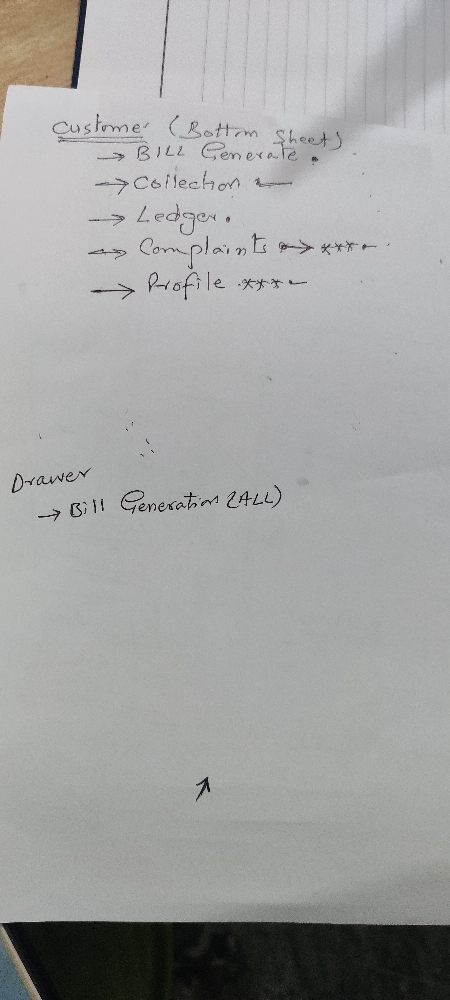 Customer (Bottom Sheet)
→ BILL Generate.
→ Collection ←
→ Ledger.
→ Complaints → ***←
→ Profile ***←
Drawer
→ Bill Generation (ALL)
↗